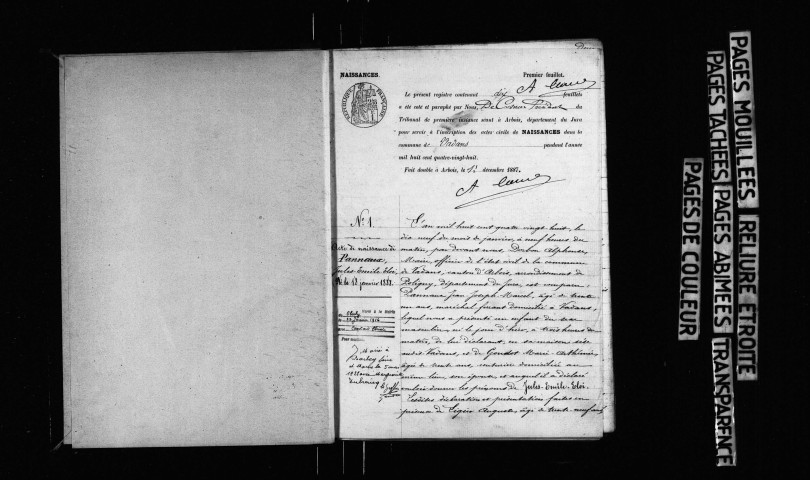 NAISSANCES.
Premier feuillet.
RÉPUBLIQUE FRANÇAISE
Le présent registre contenant dix feuillets
a été coté et paraphé par Nous, Président du
Tribunal de première instance séant à Arbois, département du Jura
pour servir à l'inscription des actes civils de NAISSANCES dans la
commune de Vadans pendant l'année
mil huit cent quatre-vingt-huit.
Fait double à Arbois, le décembre 1887.
N° 1.
Acte de naissance de
Pannaux,
Jules-Emile-Eloi,
Né le 18 janvier 1888.
L'an mil huit cent quatre vingt huit, le
dix neuf du mois de janvier, à neuf heures du
matin, par devant nous, Alphonse,
Maire, officier de l'état civil de la commune
de Vadans, canton d'Arbois, arrondissement de
Poligny, département du Jura, est comparu
Pannaux Jean Joseph Marcel, âgé de trente
un ans, maréchal ferrant domicilié à Vadans,
lequel nous a présenté un enfant du sexe
masculin, né le jour d'hier, à trois heures du
matin, de lui déclarant, en sa maison sise
audit Vadans, et de Gendot Marie
âgée de trente ans, couturière domiciliée au
même lieu son épouse, et auquel il a déclaré
vouloir donner les prénoms de Jules-Emile-Eloi.
Lesdites déclaration et présentation faites en
présence de Ligier Auguste, âgé de trente neuf ans
PAGES MOUILLEES RELIURE ETROITE
PAGES TACHEES PAGES ABIMEES TRANSPARENCE
PAGES DE COULEUR